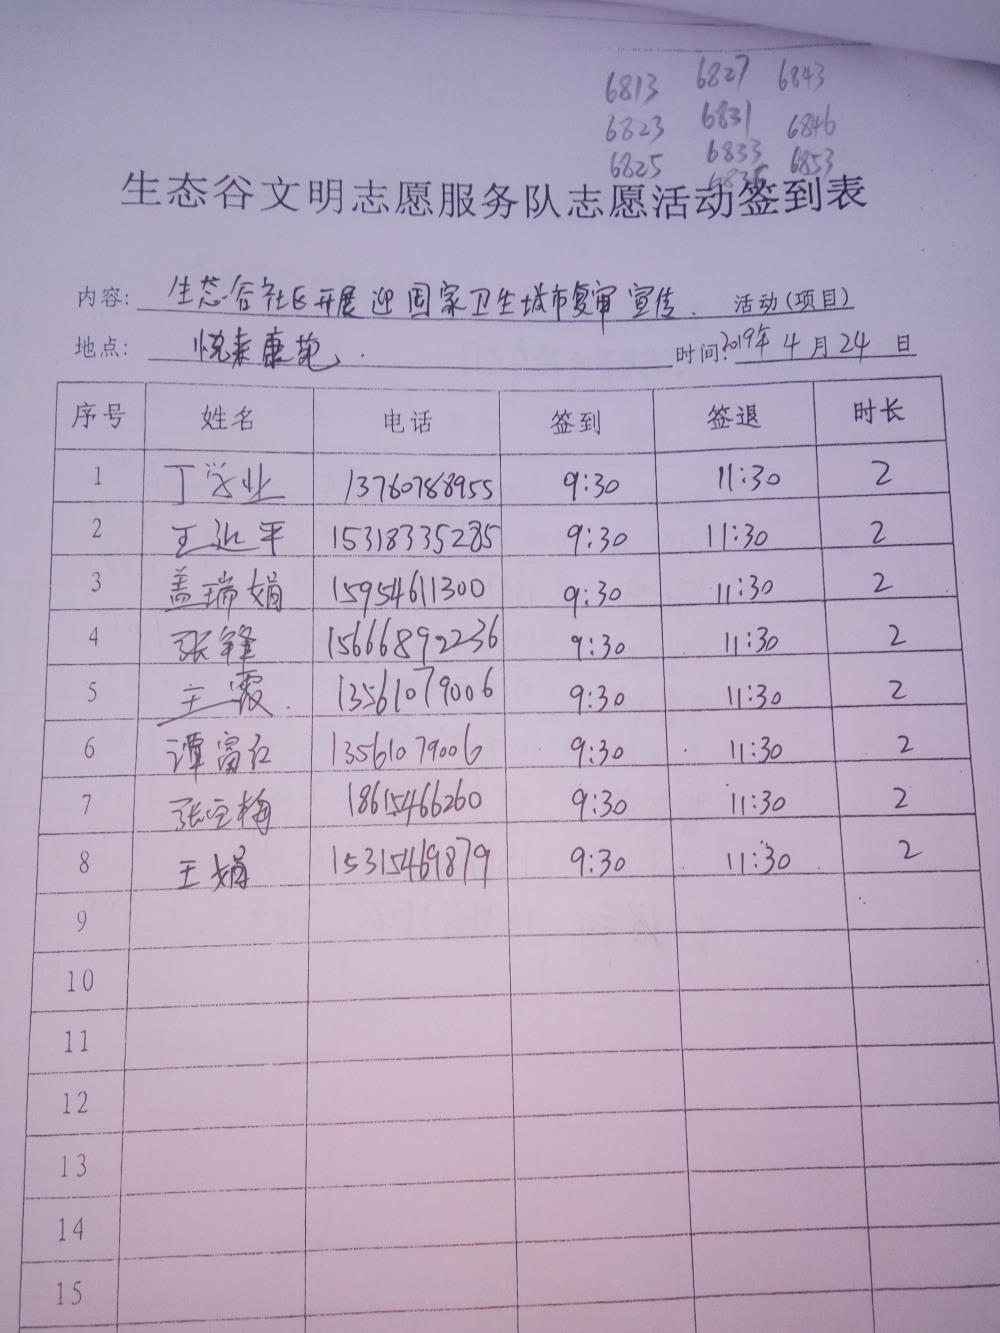 6813 6827 6843
6823 6831 6846
6825 6833 6853
6836
生态谷文明志愿服务队志愿活动签到表
内容: 生态谷社区开展迎国家卫生城市复审宣传. 活动(项目)
地点: 悦来康苑 时间:2019年4月24日
序号 姓名 电话 签到 签退 时长
1 丁学业 13760768955 9:30 11:30 2
2 王延平 15318335285 9:30 11:30 2
3 盖瑞娟 15954611300 9:30 11:30 2
4 张锋 15666892236 9:30 11:30 2
5 王霞. 13561079006 9:30 11:30 2
6 谭富红 13561079006 9:30 11:30 2
7 张宝梅 18615466260 9:30 11:30 2
8 王娟 15315469879 9:30 11:30 2
9
10
11
12
13
14
15